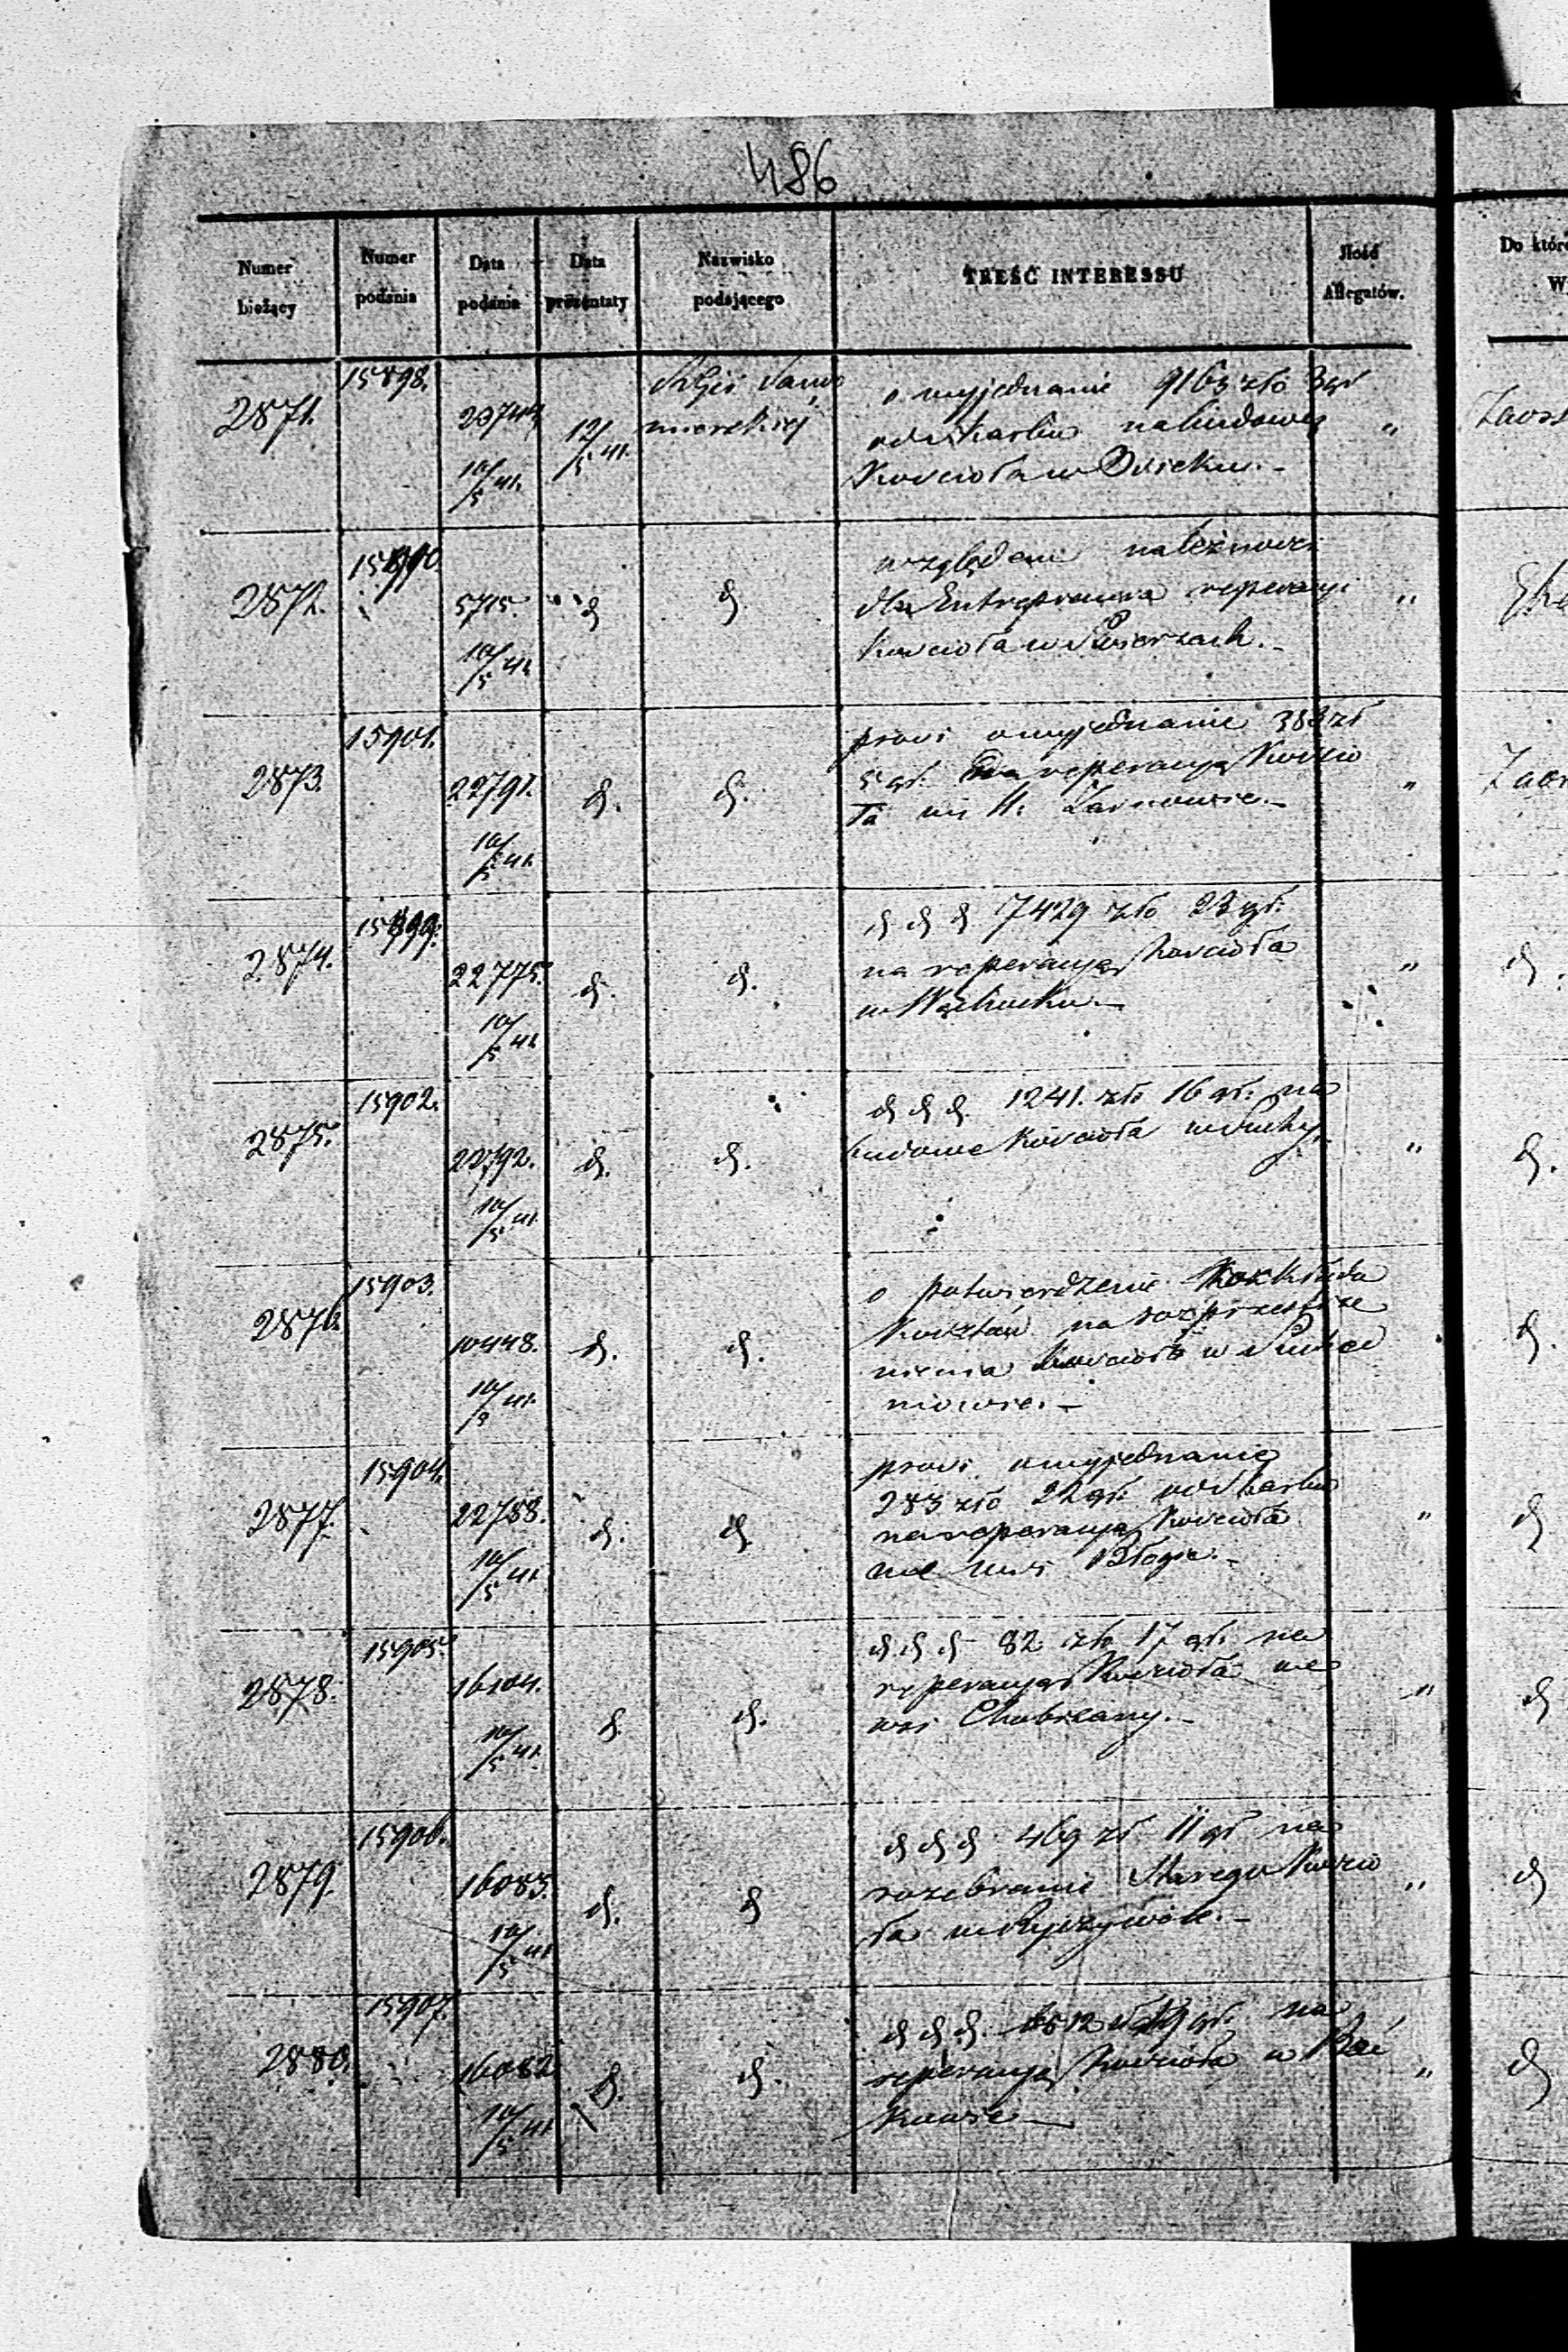 486
Numer bieżący
Numer podania
Data podania
Data prezentaty
Nazwisko podającego
TREŚĆ INTERESSU
Ilość Allegatów.
Do które
W
2871.
15898.
10/5 41.
12/5 41.
o wyjednanie 9163 złp 3 gr
od Skarbu na budowę
Kościoła w Osieku. -
"
Zaos
2872.
5715.
10/5 41.
d
d.
względem należności
dla Entreprenera reperacyi
Kościoła w Świerzach. -
"
2873.
15901.
22791.
10/5 41.
d.
d.
prosi o wyjednanie 383 zł
5 gr. na reperacyą Kościo
ła w M. Żarnowie. -
"
Zaos
2874.
15899.
22775.
10/5 41.
d.
d.
d d d 7429 złp 23 gr.
na reperacyą Kościoła
w Wąchocku. -
"
d.
2875.
15902.
22792.
10/5 41.
d.
d.
d d d. 1241. złp 16 gr. na
budowę Kościoła w Suchy.
"
d.
2876.
15903.
10448.
10/5 41.
d.
d.
o potwierdzenie Rozkładu
Kosztów na rozprzestrze
nienia Kościoła w
niowie. -
d.
2877.
15904.
22788.
10/5 41.
d.
d.
prosi o wyjednanie
283 złp 22 gr. od Skarbu
na reperacyą Kościoła
we wsi Błogie. -
"
d.
2878.
15905.
16104.
10/5 41.
d.
d.
d d d 82 złp 17 gr. na
reperacyą Kościoła we
wsi Chobrzany. -
"
d
2879.
15906.
16083.
10/5 41
d.
d
d d d 469 zł 11 gr na
rozebranie Starego Kościo
ła w Ryczywole. -
"
d
2880.
15907.
16082
10/5 41
d.
d.
d d d. gr. na
reperacyą Kościoła w Bać
Kowie -
"
d